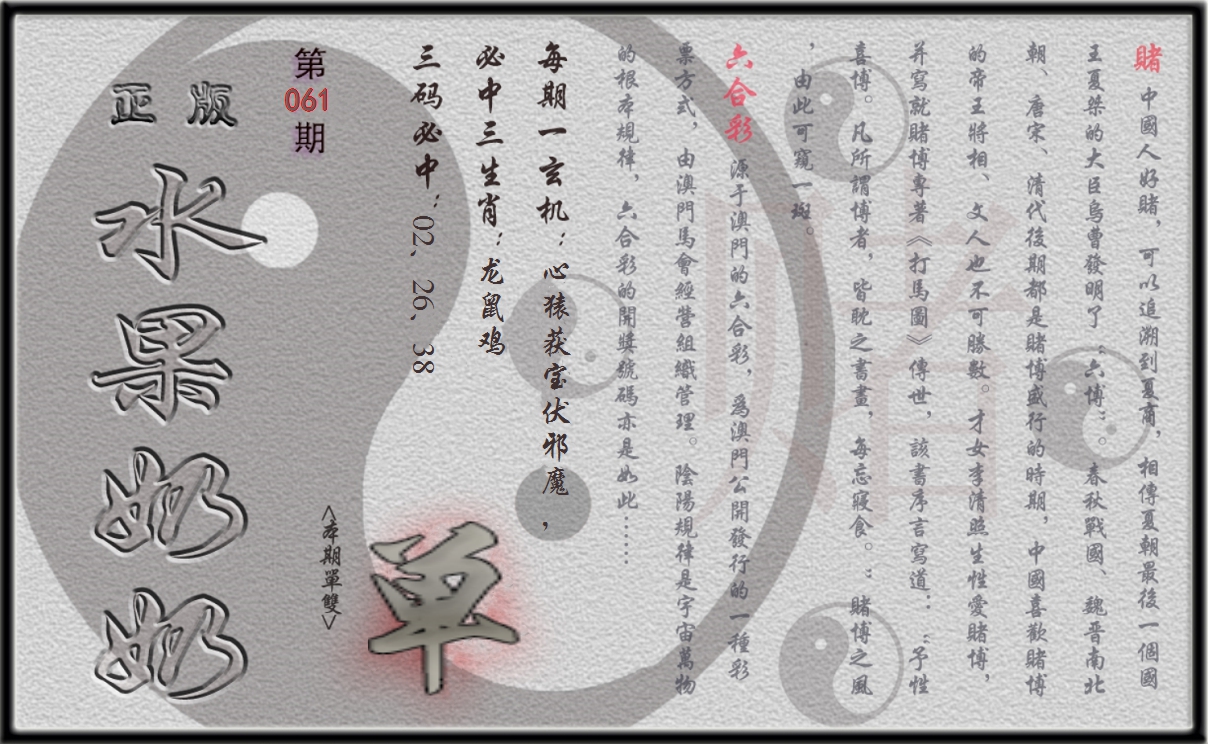 賭 中國人好賭，可以追溯到夏商，相傳夏朝最後一個國
王夏桀的大臣烏曹發明了“六博”。春秋戰國、魏晋南北
朝、唐宋、清代後期都是賭博盛行的時期，中國喜歡賭博
的帝王將相、文人也不可勝數。才女李清照生性愛賭博，
并寫就賭博專著《打馬圖》傳世，該書序言寫道：“予性
喜博。凡所謂博者，皆耽之書畫，每忘寢食。：賭博之風
，由此可窺一斑。
六合彩 源于澳門的六合彩，爲澳門公開發行的一種彩
票方式，由澳門馬會經營組織管理。陰陽規律是宇宙萬物
的根本規律，六合彩的開獎號碼亦是如此……
每期一玄机：心猿获宝伏邪魔，
必中三生肖：龙鼠鸡
三码必中：02、26、38
<本期單雙>
単
第
061
期
正版
水果奶奶
赌